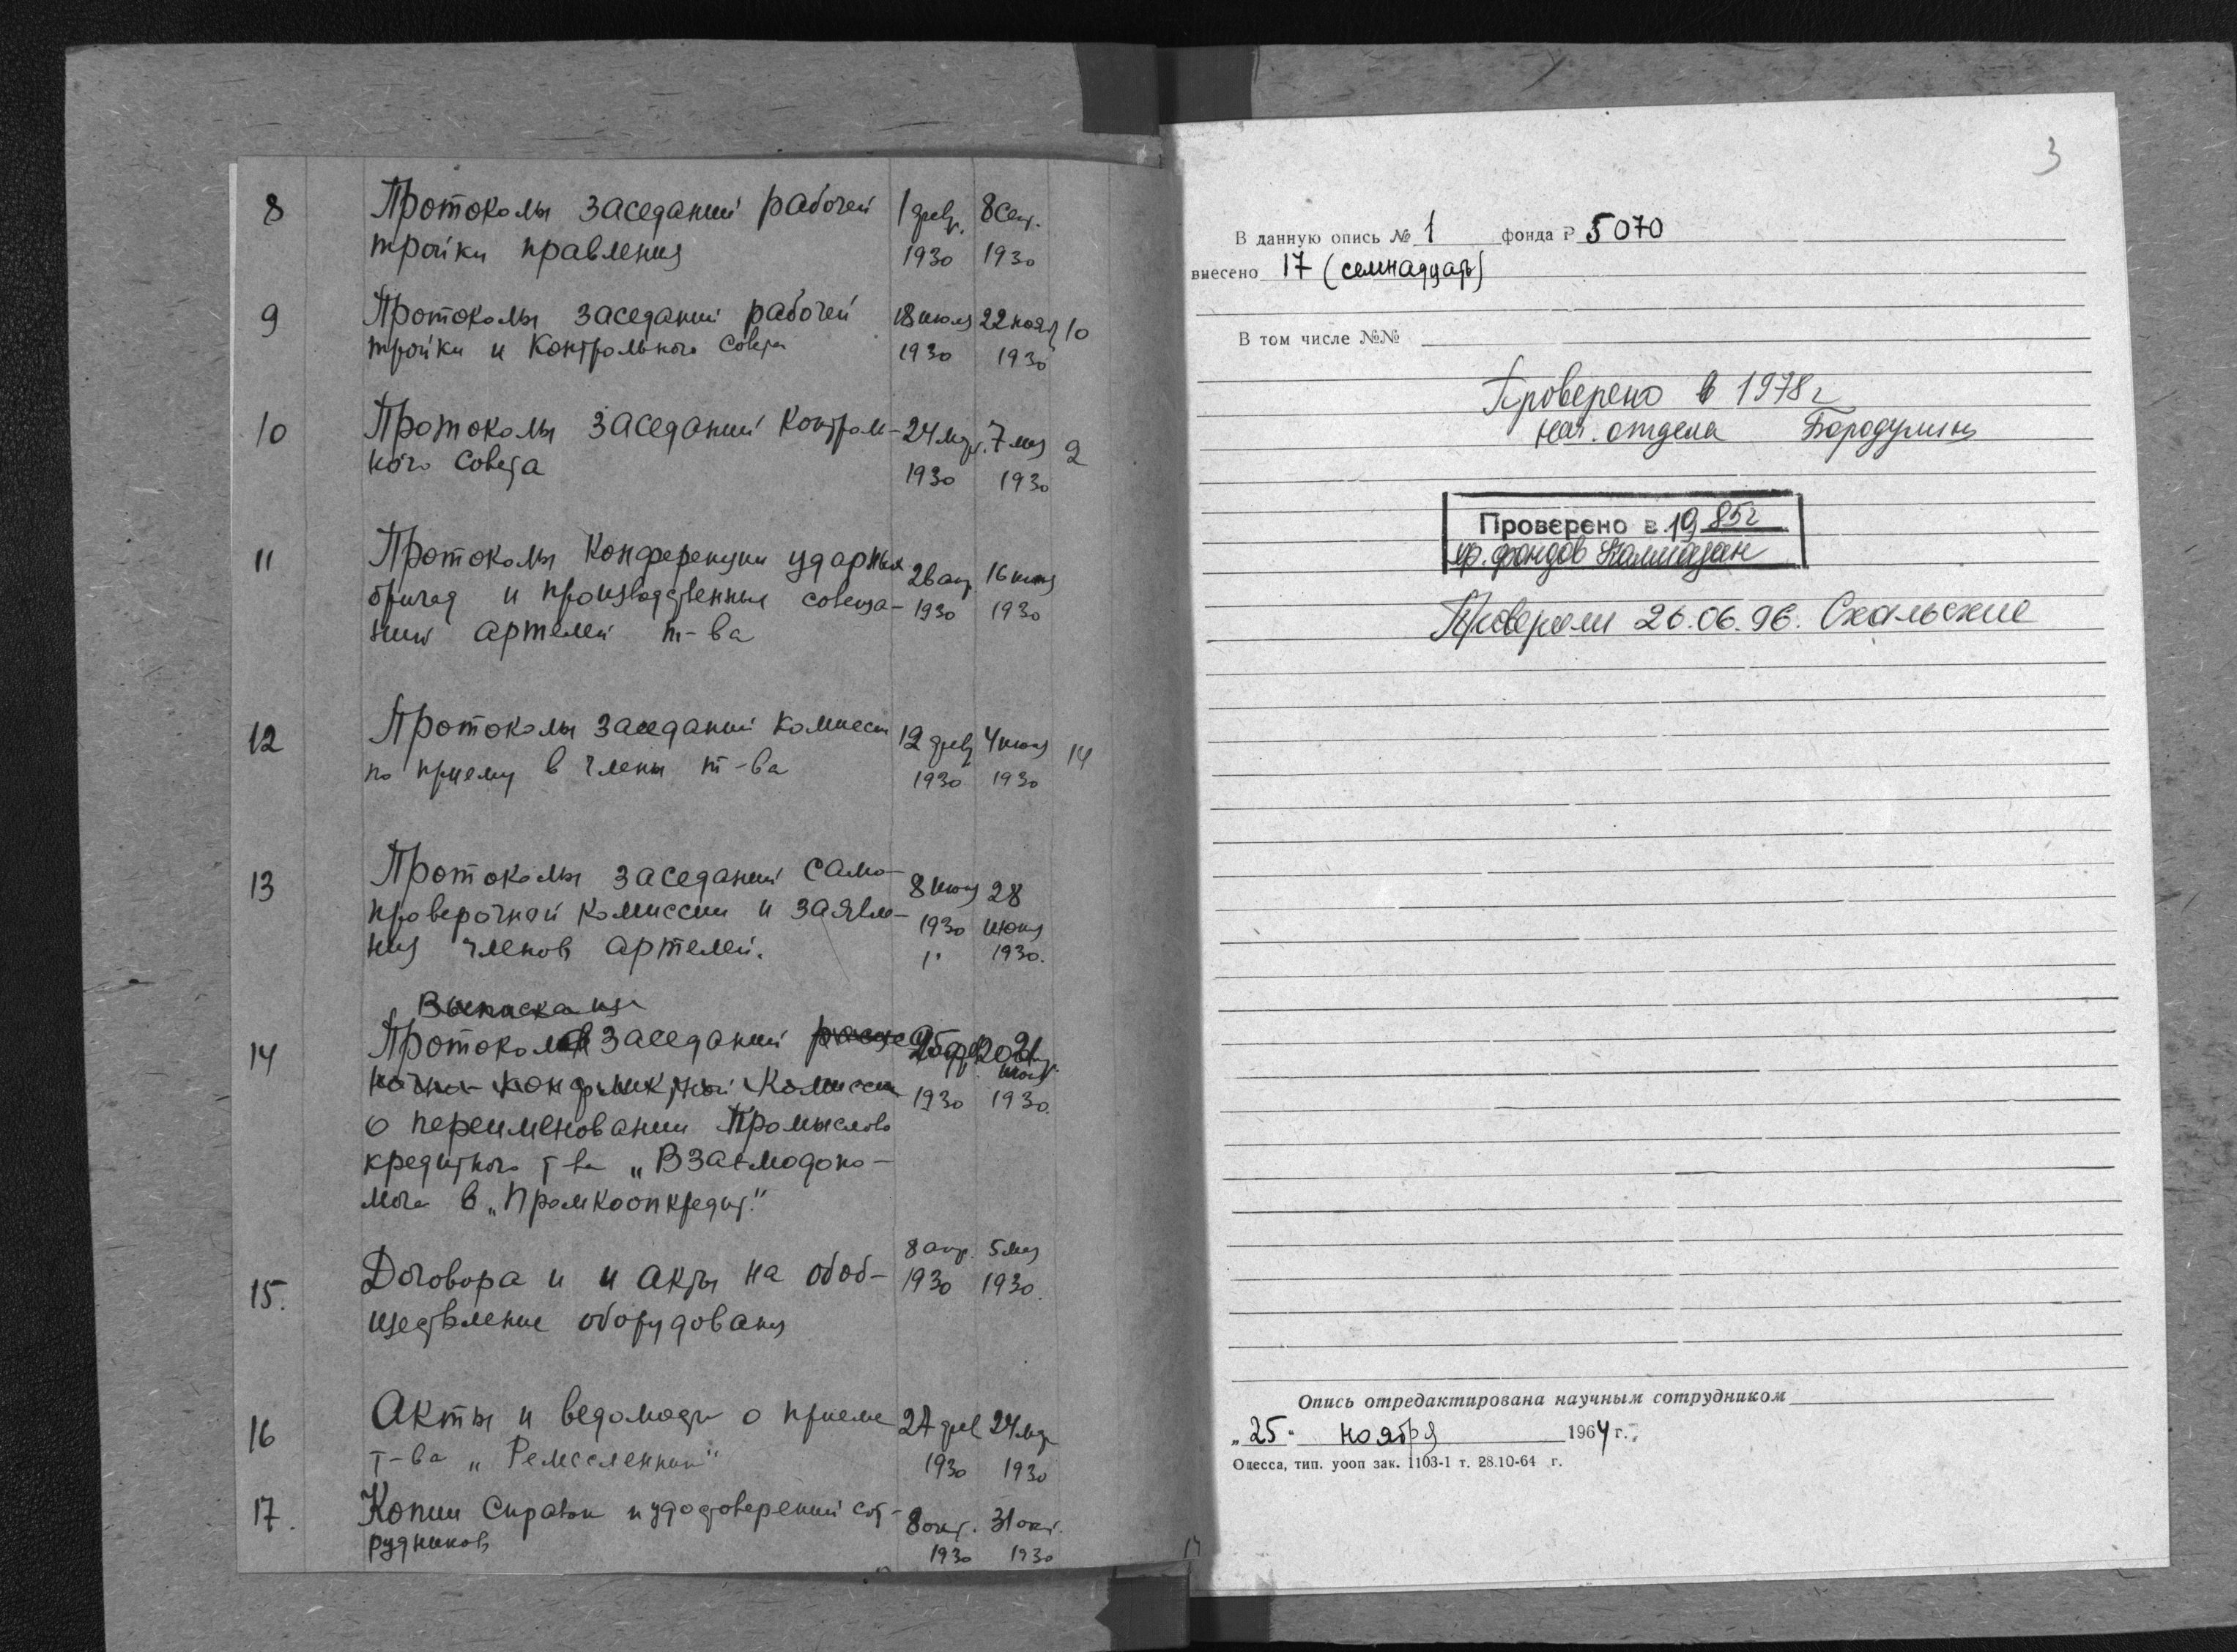 8 Протоколы заседаний рабочей 1 февр. 8 сен.
тройки правления 1930 1930
9 Протоколы заседаний рабочей 18 июля 22 нояб 10
тройки и Контрольного Совета 1930 1930
10 Протоколы заседаний Контроль- 24 мар. 7 мая 2
ного Совета 1930 1930
11 Протоколы Конференции ударных 26 апр 16
бригад и производственных совеща- 1930 1930
ний артелей т-ва
12 Протоколы заседаний комиссии 12 фев 4 июля 14
по приему в члены т-ва 1930 1930
13 Протоколы заседаний само- 8 июня 28
проверочной комиссии и заявле- 1930 июня
ния членов артелей. " 1930.
Выписка из
14 Протоколов заседаний
конфликтной Комиссии 1930 1930.
о переименовании Промыслово
кредитного т-ва „Взаемодопо-
мога в „Промкоопкредит."
8 апр. 5 мая
15. Договора и и акты на обоб- 1930 1930.
ществление оборудования
16 Акты и ведомости о приеме 27 фев 24 мар
т-ва „Ремесленник" 1930 1930
17. Копии справок и удостоверений сот- 8 окт. 31 окт.
рудников 1930 1930
3
В данную опись № 1 фонда Р 5070
внесено 17 (семнадцать)
В том числе №№
Проверено в 1978 г
нач. отдела Бородулина
Проверено в 19 85 г
хр. фондов
Проверили 26.06.96. Скальские
Опись отредактирована научным сотрудником
„25" ноября 1964 г.
Одесса, тип. уооп зак. 1103-1 т. 28.10-64 г.